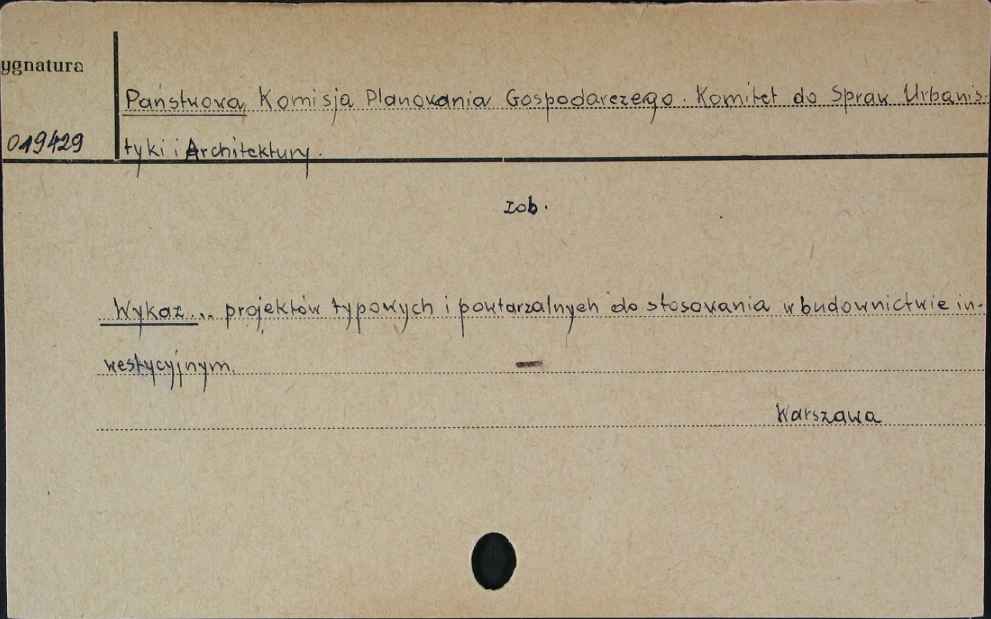 ygnatura
Państwowa Komisja Planowania Gospodarczego. Komitet do Spraw Urbanis-
019429
tyki i Architektury.
zob.
Wykaz... projektów typowych i powtarzalnych do stosowania w budownictwie in-
westycyjnym.
Warszawa